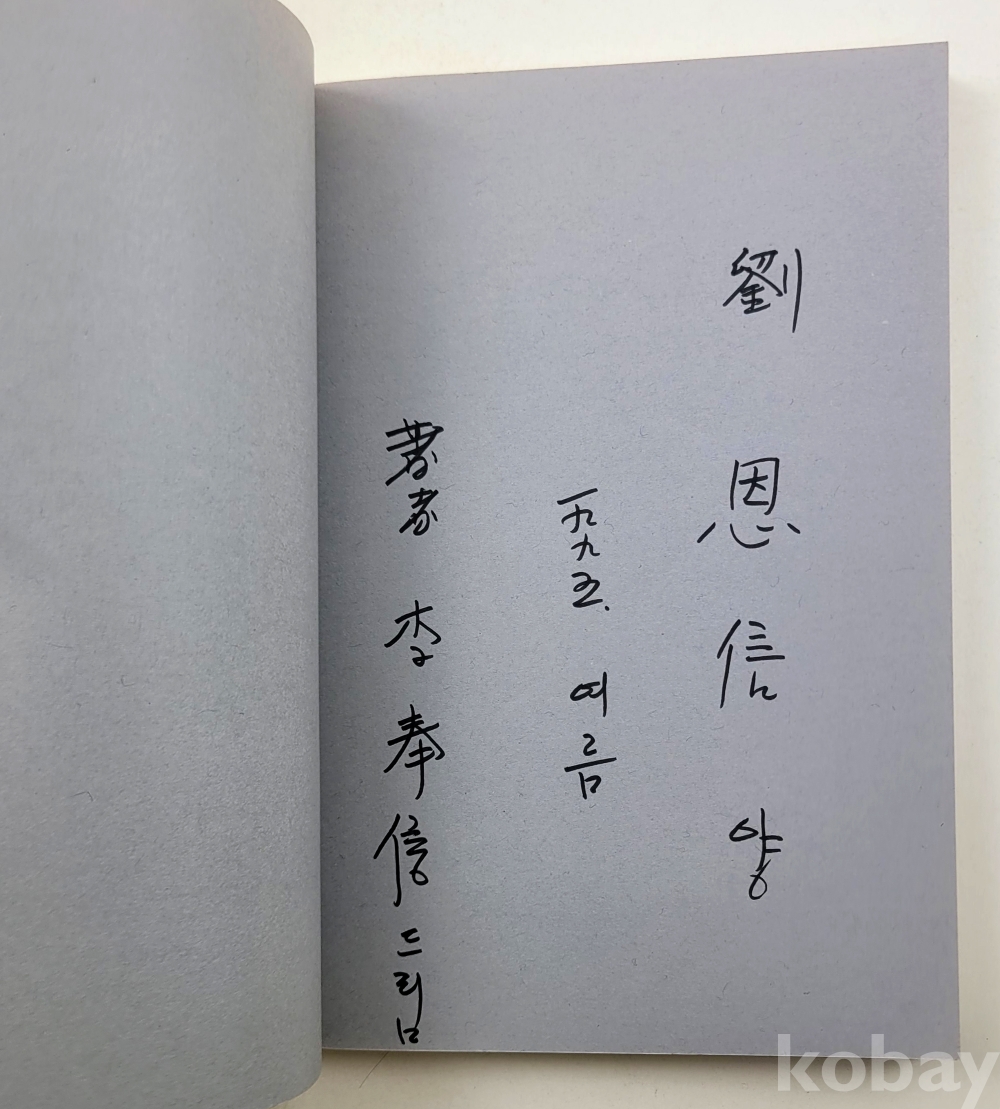 劉恩信 양
一九九五. 여름
著者 李奉信 드림
kobay